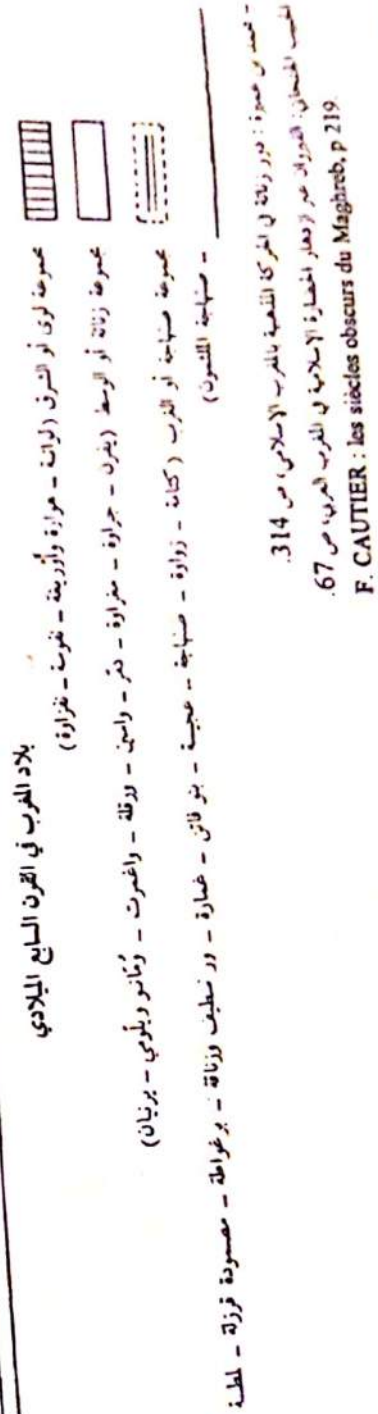 بلاد المغرب في القرن السابع الميلادي
مجموعة لوى أو الشرق (لواتة - هوارة وأوريغة - نفوسة - نفزارة)
مجموعة زناتة أو الوسط (يفرن - جراوة - مغراوة - دمّر - واسين - ورقلة - واغمرت - ومّانو ويلّومي - يرنيان)
مجموعة صنهاجة أو الغرب (كتامة - زواوة - صنهاجة - عجيسة - بنو فاتن - غمارة - ور نطيف وزناقة - برغواطة - مصمودة قزولة - لمطة
- صنهاجة الملثمون)
- محمد بن عميرة : دور زناتة في الحركة المذهبية بالمغرب الاسلامي، ص 314.
الحبيب الجنحاني: القيروان عبر ازدهار الحضارة الاسلامية في المغرب العربي، ص 67.
F. CAUTIER : les siècles obscurs du Maghreb, p 219.